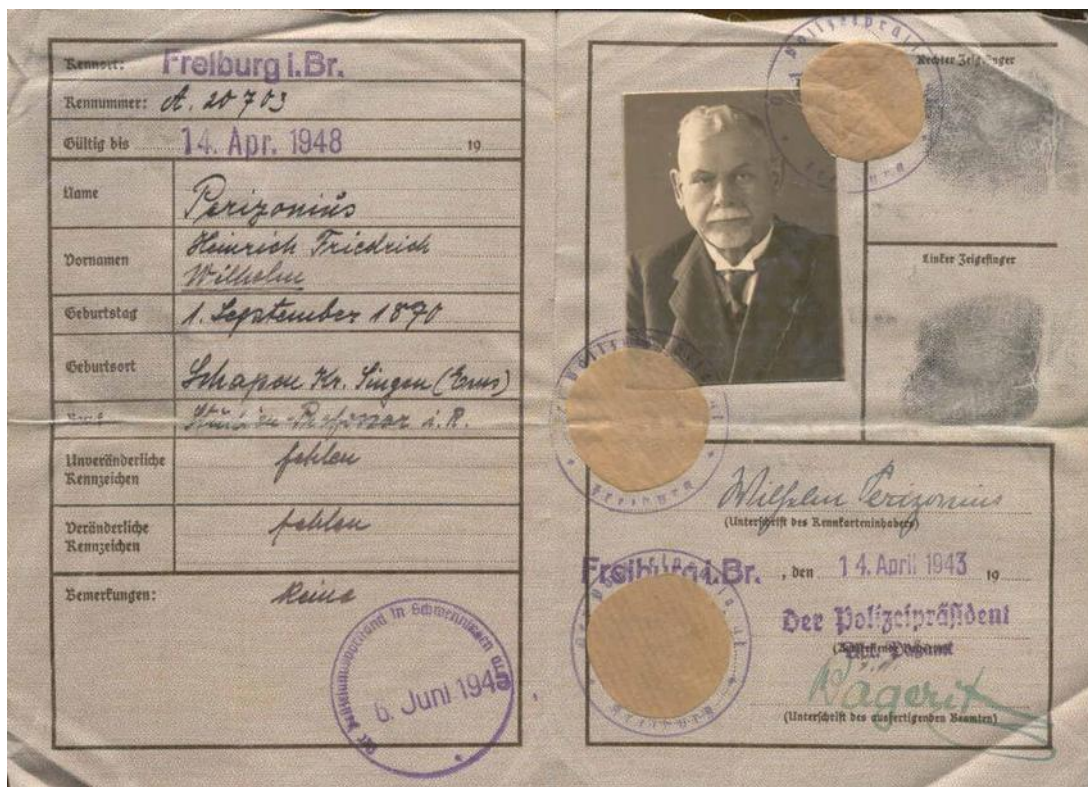 Kennort: Freiburg i. Br.
Kennummer: A. 20703
Gültig bis 14. Apr. 1948 19
Name Perizonius
Vornamen Heinrich Friedrich
Wilhelm
Geburtstag 1. September 1870
Geburtsort Schapen Kr. Lingen (Ems)
Beruf Studien-Professor i. R.
Unveränderliche Kennzeichen fehlen
Veränderliche Kennzeichen fehlen
Bemerkungen: Keine
in Schwenningen
6. Juni 194
Rechter Zeigefinger
Linker Zeigefinger
Freiburg
Freiburg
Wilhelm Perizonius
(Unterschrift des Kennkarteninhabers)
Freiburg i. Br. , den 14. April 1943 19
Der Polizeipräsident
Freiburg
(Unterschrift des ausfertigenden Beamten)